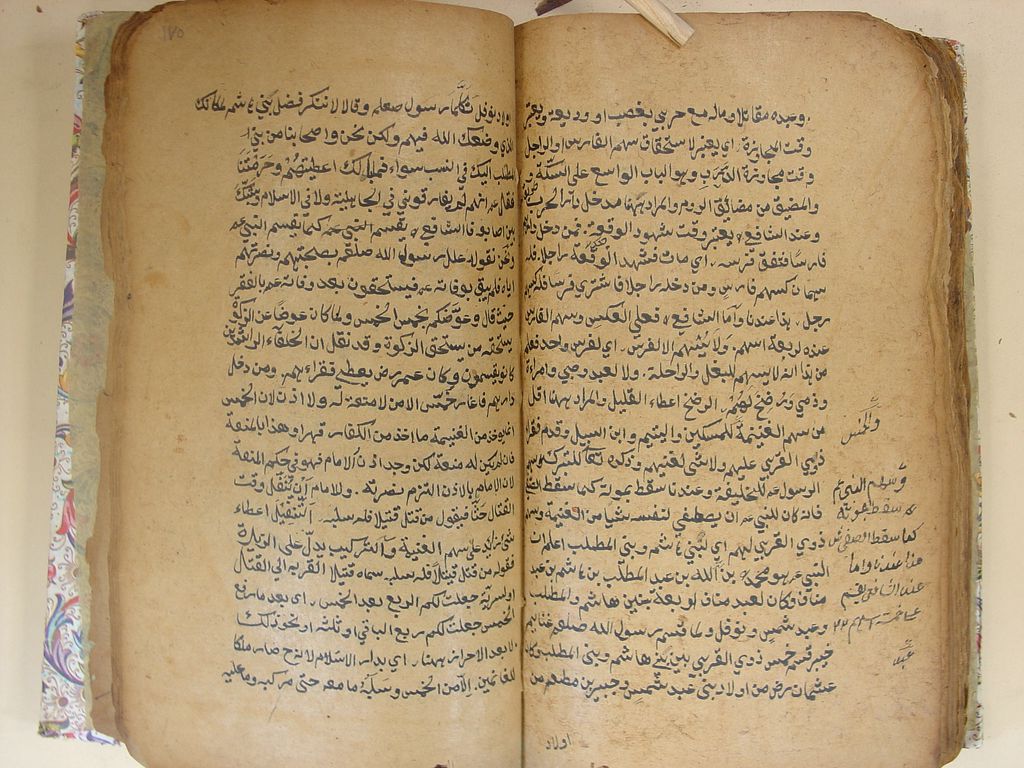 وعبده مقاتلا وماله مع حربي بغصب او وديعة ويعتبر
وقت المجاوزة اي يعتبر لاستحقاق سهم الفارس او الراجل
وقت مجاوزة الدرب وهو الباب الواسع على السكة
والمضيق من مضائق الروم والمراد ههنا مدخل دار الحرب
وعند الشافعي يعتبر وقت شهود الوقعة فمن دخل
فارسا فنفق فرسه اي مات فشهد الوقعة راجلا فله
سهمان كسهم فارس ومن دخله راجلا فاشترى فرسا فله كسهم
رجل هذا عندنا واما الشافعي فعلى العكس وسهم الفارس
عنده اربعة اسهم ولا يسهم الا لفرس اي لفرس واحد فعلم
من هذا انه لا يسهم للبغل والراحلة ولا لعبد وصبي وامرأة
وذمي ورضخ لهم الرضخ اعطاء القليل والمراد ههنا اقل
من سهم الغنيمة والخمس للمسكين واليتيم وابن السبيل وقدم فقراء
ذوي القربى عليهم ولا شئ لغنيهم وذكره تعالى للتبرك وسهم
الرسول عم للخليفة وعندنا سقط بموته كما سقط الصفي
فانه كان للنبي عم ان يصطفي لنفسه شيئا من الغنيمة وسهم
ذوي القربى لهم اي لبني هاشم وبني المطلب اعلم ان
النبي عم هو محمد بن عبد الله بن عبد المطلب بن هاشم بن عبد
مناف وكان لعبد مناف اربعة بنين هاشم والمطلب
وعبد شمس ونوفل ولما قسم رسول الله صلعم غنائم
خيبر قسم خمس ذوي القربى بين بني هاشم وبني المطلب وكان
عثمان رض من اولاد بني عبد شمس وجبير بن مطعم من
اولاد
والخمس
وسهم النبي عم
سقط بموته
كما سقط الصفي
هذا عندنا واما
عند الشافعي يقسم
اولاد نوفل فكلما رسول صلعم وقالا لا ننكر فضل بني هاشم لمكانك
الذي وضعك الله فيهم ولكن نحن واصحابنا من بني
المطلب اليك في النسب سواء فما بالك اعطيتهم وحرمتنا
فقال عم انهم لم يفارقوني في الجاهلية ولا في الاسلام وشبك
بين اصابعه فالشافعي يقسم كما يقسم النبي عم
ونحن نقول علل رسول الله صلعم بصحبتهم ونصرتهم
اياه فلم يبق بوفاته عم فيستحقون بعد وفاته عم بالفقر
حيث قال وعوضكم بخمس الخمس ولما كان عوضا عن الزكوة
يستحقه من يستحق الزكوة وقد نقل ان الخلفاء الراشدين
كانوا يقسمون وكان عمر رض يعطي فقراءهم ومن دخل
دارهم فاغار خمس الا من لا منعة له ولا اذن لان الخمس
انما يؤخذ من الغنيمة ما اخذ من الكفار قهرا وهذا بالمنعة
فان لم يكن له منعة لكن وجد اذن الامام فهو في حكم المنعة
لان الامام بالاذن التزم بنصرته وللامام ان ينفل وقت
القتال حثا فيقول من قتل قتيلا فله سلبه التنفيل اعطاء
شئ زائد على سهم الغنيمة والتركيب يدل على الزيادة
فقوله من قتل قتيلا فله سلبه سماه قتيلا لقربه الى القتل
او لسرية جعلت لكم الربع بعد الخمس اي بعد ما رفع
الخمس جعلت لكم ربع الباقي او ثلثه او نحو ذلك
لا بعد الاحراز ههنا اي بدار الاسلام لانه صار ملكا
للغانمين الا من الخمس وسلبه ما معه حتى مركبه وما عليه